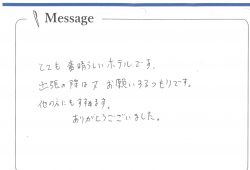 Message
とても 素晴らしいホテルです。
出張の際は又 お願いするつもりです。
他の方にもすすめます。
ありがとうございました。